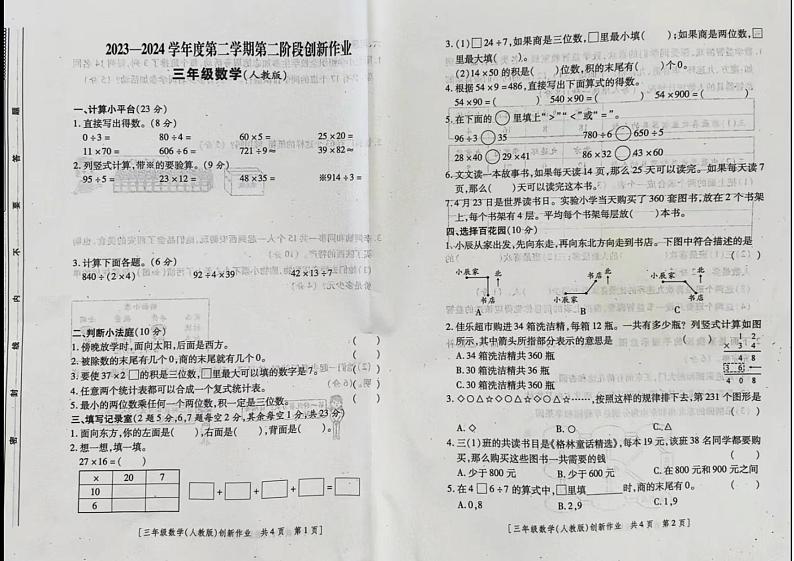 2023—2024 学年度第二学期第二阶段创新作业
三年级数学(人教版)
一、计算小平台(23 分)
1. 直接写出得数。(8 分)
0÷3= 80÷4= 60×5= 25×20=
11×70= 606÷6= 721÷9≈ 39×82≈
2. 列竖式计算,带※的要验算。(9 分)
95÷5= 23×12= 48×35= ※914÷3=
3. 计算下面各题。(6 分)
840÷(2×4) 92÷4×39 42×13÷7
二、判断小法庭(10 分)
1. 傍晚放学时,面向太阳,后面是西方。 ( )
2. 被除数的末尾有几个0,商的末尾就有几个0。 ( )
3. 要使 37×2□的积是三位数,□里最大可以填的数字是7。 ( )
4. 任意两个统计表都可以合成一个复式统计表。 ( )
5. 最小的两位数乘任何一个两位数,积一定是三位数。 ( )
三、填写记录室(2 题 5 分,6,7 题每空 2 分,其余每空 1 分,共 23 分)
1. 面向东方,你的左面是( ),右面是( ),背面是( )。
2. 想一想,填一填。
27×16=( )
× 20 7
10
6
□+□+□+□=□
[三年级数学(人教版)创新作业 共 4 页 第 1 页]
密 封 线 内 不 要 答 题
3. (1)□24÷7,如果商是三位数,□里最小填( );如果商是两位数,□
里最大填( )。
(2)14×50 的积是( )位数,积的末尾有( )个0。
4. 根据 54×9=486,直接写出下面算式的得数。
54×90=( ) 540×90=( ) 54×900=( )
5. 在下面的○里填上“>”“<”或“=”。
96÷3○35 780÷6○650÷5
28×40○29×41 86×32○43×60
6. 文文读一本故事书,如果每天读 14 页,那么 25 天可以读完。如果每天读 7
页,那么( )天可以读完这本书。
7. 4 月 23 日是世界读书日。实验小学当天购买了 360 套图书,放在 2 个书架
上,每个书架有 4 层。平均每个书架每层放( )本书。
四、选择百花园(10 分)
1. 小辰从家出发,先向东走,再向东北方向走到书店。下图中符合描述的是
( )
小辰家 北 书店
A
书店 北 小辰家
B
小辰家 北 书店
C
2. 佳乐超市购进 34 箱洗洁精,每箱 12 瓶。一共有多少瓶?列竖式计算如图
所示,其中箭头所指部分表示的意思是 ( )
A. 34 箱洗洁精共 360 瓶
B. 30 箱洗洁精共 36 瓶
C. 30 箱洗洁精共 360 瓶
1 2
× 3 4
4 8
3 6
4 0 8
3. ◇○△☆◇○△☆◇○△☆……,按照这样的规律排下去,第 231 个图形是
( )
A. ◇ B. ○ C. △
4. 三(1)班的共读书目是《格林童话精选》,每本 19 元,该班 38 名同学都要购
买,那么购买这些图书一共需要的钱 ( )
A. 少于 800 元 B. 少于 600 元 C. 在 800 元和 900 元之间
5. 在 4□6÷7 的算式中,□里填______时,商的末尾有0。 ( )
A. 0,8 B. 2,9 C. 1,9
[三年级数学(人教版)创新作业 共 4 页 第 2 页]